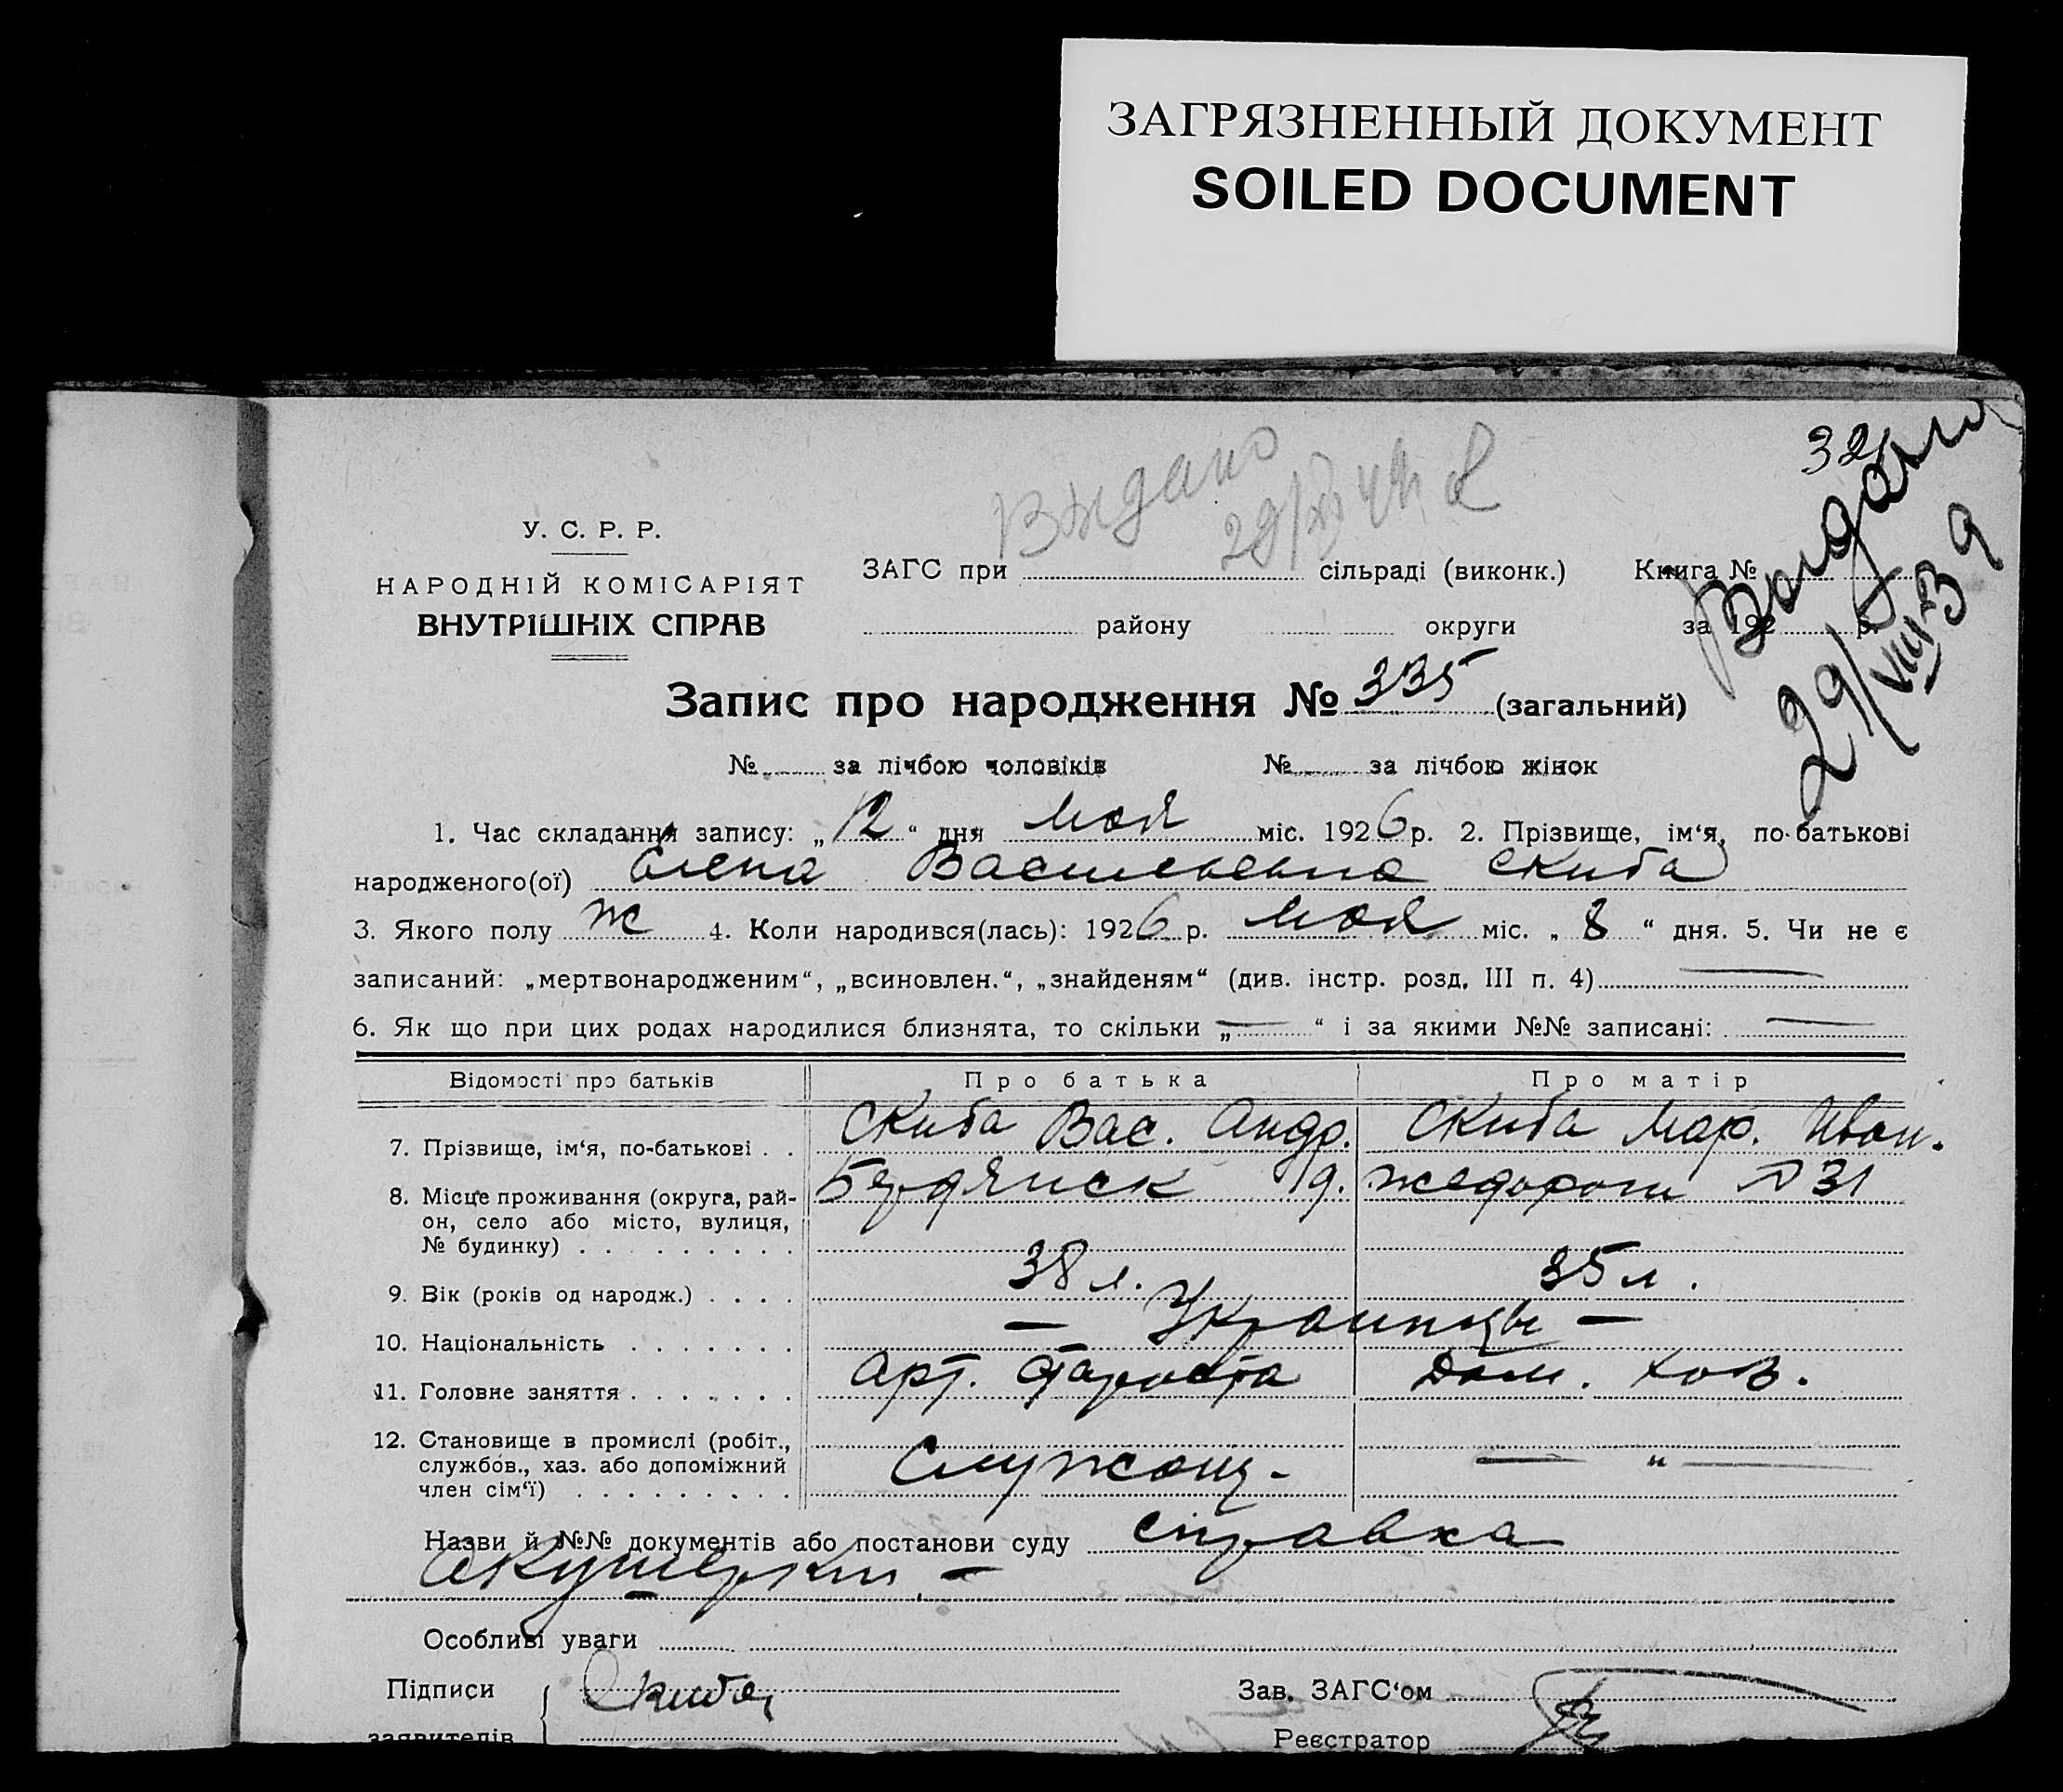 ЗАГРЯЗНЕННЫЙ ДОКУМЕНТ
SOILED DOCUMENT
32
Видано
Выдано
29/VIII 39
У. С. Р. Р.
НАРОДНІЙ КОМІСАРІЯТ
ВНУТРІШНІХ СПРАВ
ЗАГС при сільраді (виконк.) Книга №
району округи за 192 р.
Запис про народження № 335 (загальний)
№ за лічбою чоловіків № за лічбою жінок
1. Час складання запису: „12“ дня мая міс. 1926 р. 2. Прізвище, ім‘я, по-батькові
народженого(ої) Елена Васильевна Скиба
3. Якого полу ж 4. Коли народився(лась): 1926 р. мая міс. „8“ дня. 5. Чи не є
записаний: „мертвонародженим“, „всиновлен.“, „знайденям“ (див. інстр. розд. III п. 4) —
6. Як що при цих родах народилися близнята, то скільки „—“ і за якими №№ записані: —
Відомості про батьків Про батька Про матір
7. Прізвище, ім‘я, по-батькові . . Скиба Вас. Андр. Скиба Мар. Иван.
8. Місце проживання (округа, рай-
он, село або місто, вулиця,
№ будинку) . . . . . . . . . Бердянск жедороги № 31
9. Вік (років од народж.) . . . . 38 л. 35 л.
10. Національність . . . . . . . — Украинцы —
11. Головне заняття . . . . . . . Арт. староста Дом. хоз.
12. Становище в промислі (робіт.,
службов., хаз. або допоміжний
член сім‘ї) . . . . . . . . . Служащ. — „ —
Назви й №№ документів або постанови суду справка
акушерки —
Особливі уваги
Підписи Скиба Зав. ЗАГС‘ом
заявителів Реєстратор